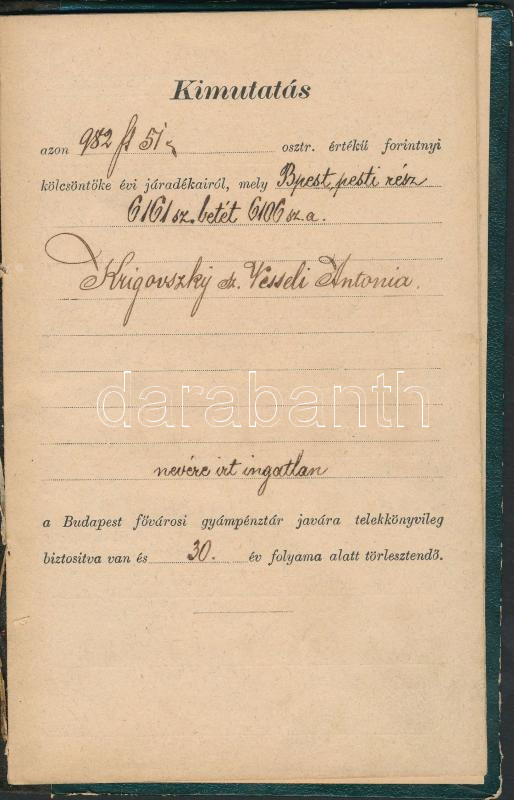 Kimutatás
azon 982 ft 51 osztr. értékű forintnyi
kölcsöntőke évi járadékairól, mely Bpest pesti rész
6161 sz. betét 6106 sz. a.
Krigovszky sz. Vesseli Antonia.
darabanth
nevére irt ingatlan
a Budapest fővárosi gyámpénztár javára telekkönyvileg
biztositva van és 30. év folyama alatt törlesztendő.